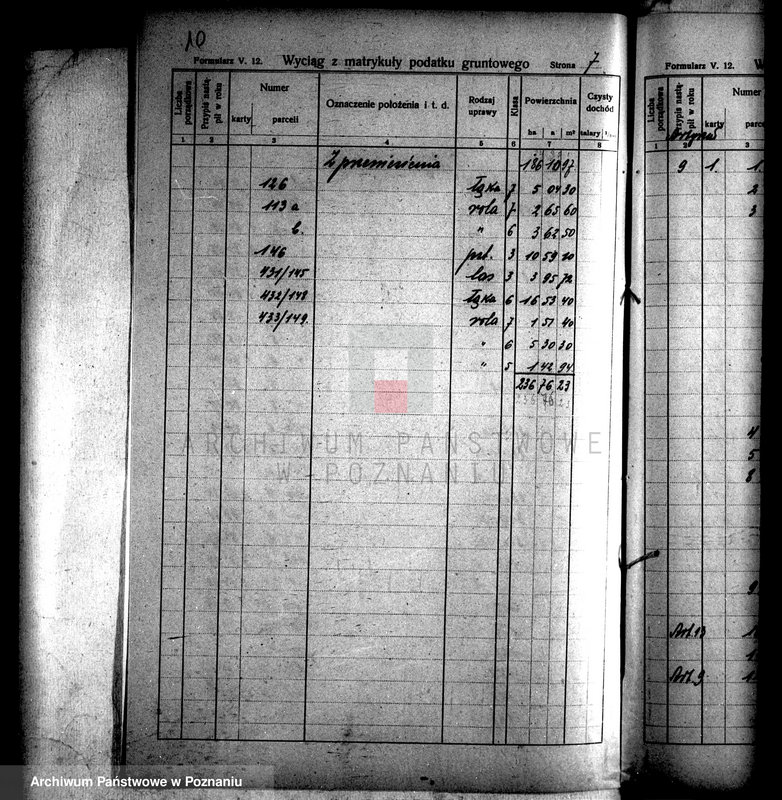 10
Formularz V. 12. Wyciąg z matrykuły podatku gruntowego Strona 7
Liczba porządkowa Przypis nastąpił w roku Numer karty parceli Oznaczenie położenia i t. d. Rodzaj uprawy Klasa Powierzchnia ha a m² Czysty dochód talary
1 2 3 4 5 6 7 8
Z przeniesienia 186 10 97
126 łąka 7 5 04 30
113 a rola 7 2 65 60
b. " 6 3 62 50
146 3 10 59 20
431/145 las 3 3 95 72
432/148 łąka 6 16 53 40
433/149. rola 7 1 51 40
" 6 5 30 30
" 5 1 42 94
236 76 23
ARCHIWUM PAŃSTWOWE
W POZNANIU
Formularz V. 12. W
Liczba porządkowa Przypis nastąpił w roku Numer karty
1 2 3
9 1. 1.
2
3
4
5
8
9
Art. 13
Art. 9
Archiwum Państwowe w Poznaniu